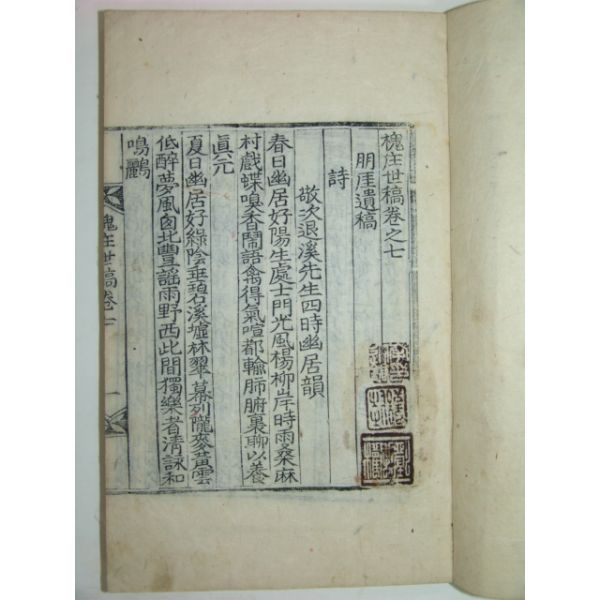 槐庄世稿卷之七
朋厓遺稿
詩
敬次退溪先生四時幽居韻
春日幽居好陽生處士門光風楊柳岸時雨桑麻
村戲蝶嗅香鬧語禽得氣喧都輸肺腑裏聊以養
眞元
夏日幽居好綠陰垂碧溪墟林翠幕列隴麥黃雲
低醉夢風囱北豐謠雨野西此間獨樂者淸詠和
鳴鸝
槐庄世稿卷七
一